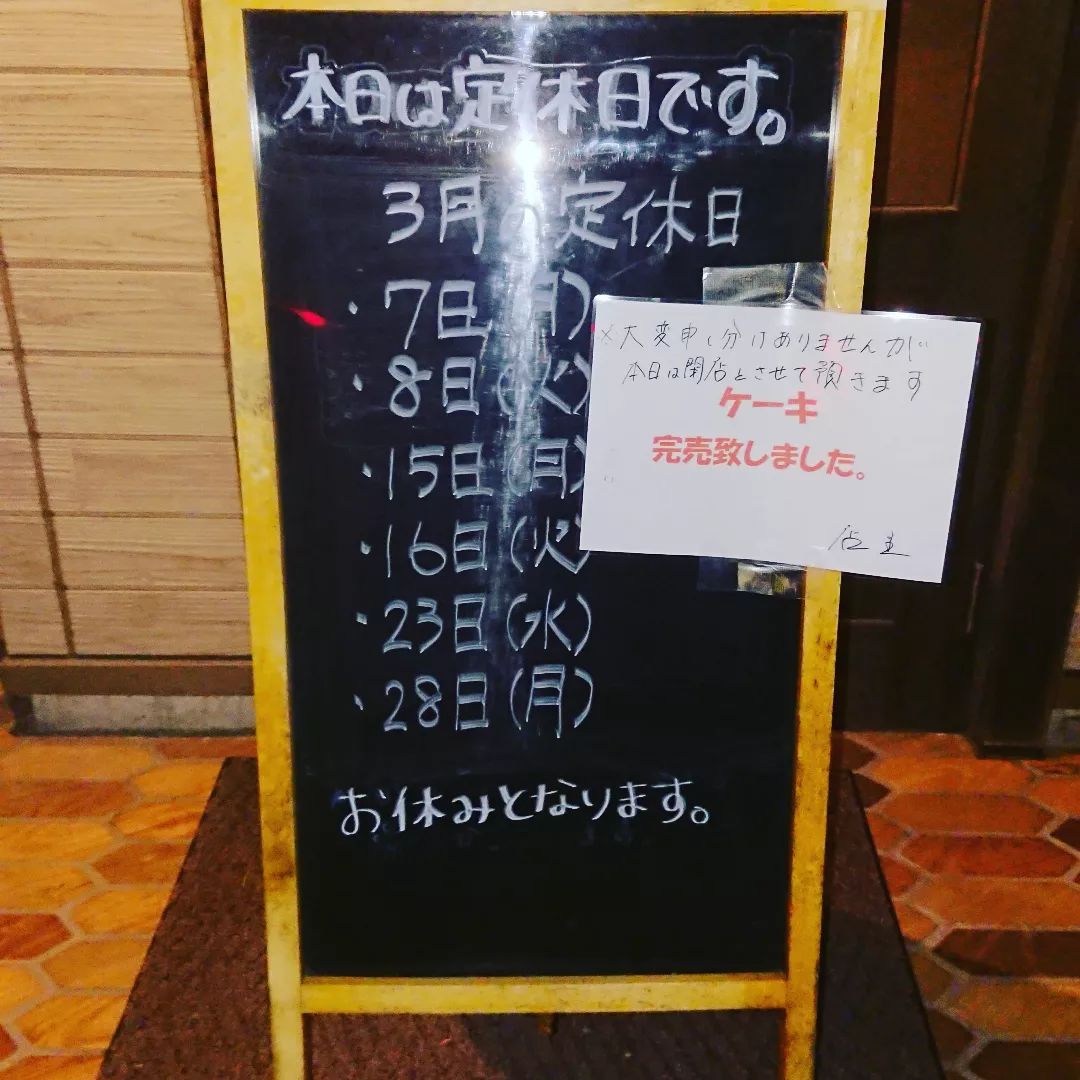 本日は定休日です。
3月の定休日
・7日(月)
・8日(火)
・15日(月)
・16日(火)
・23日(水)
・28日(月)
お休みとなります。
※大変申し分けありませんが
本日は閉店とさせて頂きます
ケーキ
完売致しました。
店主